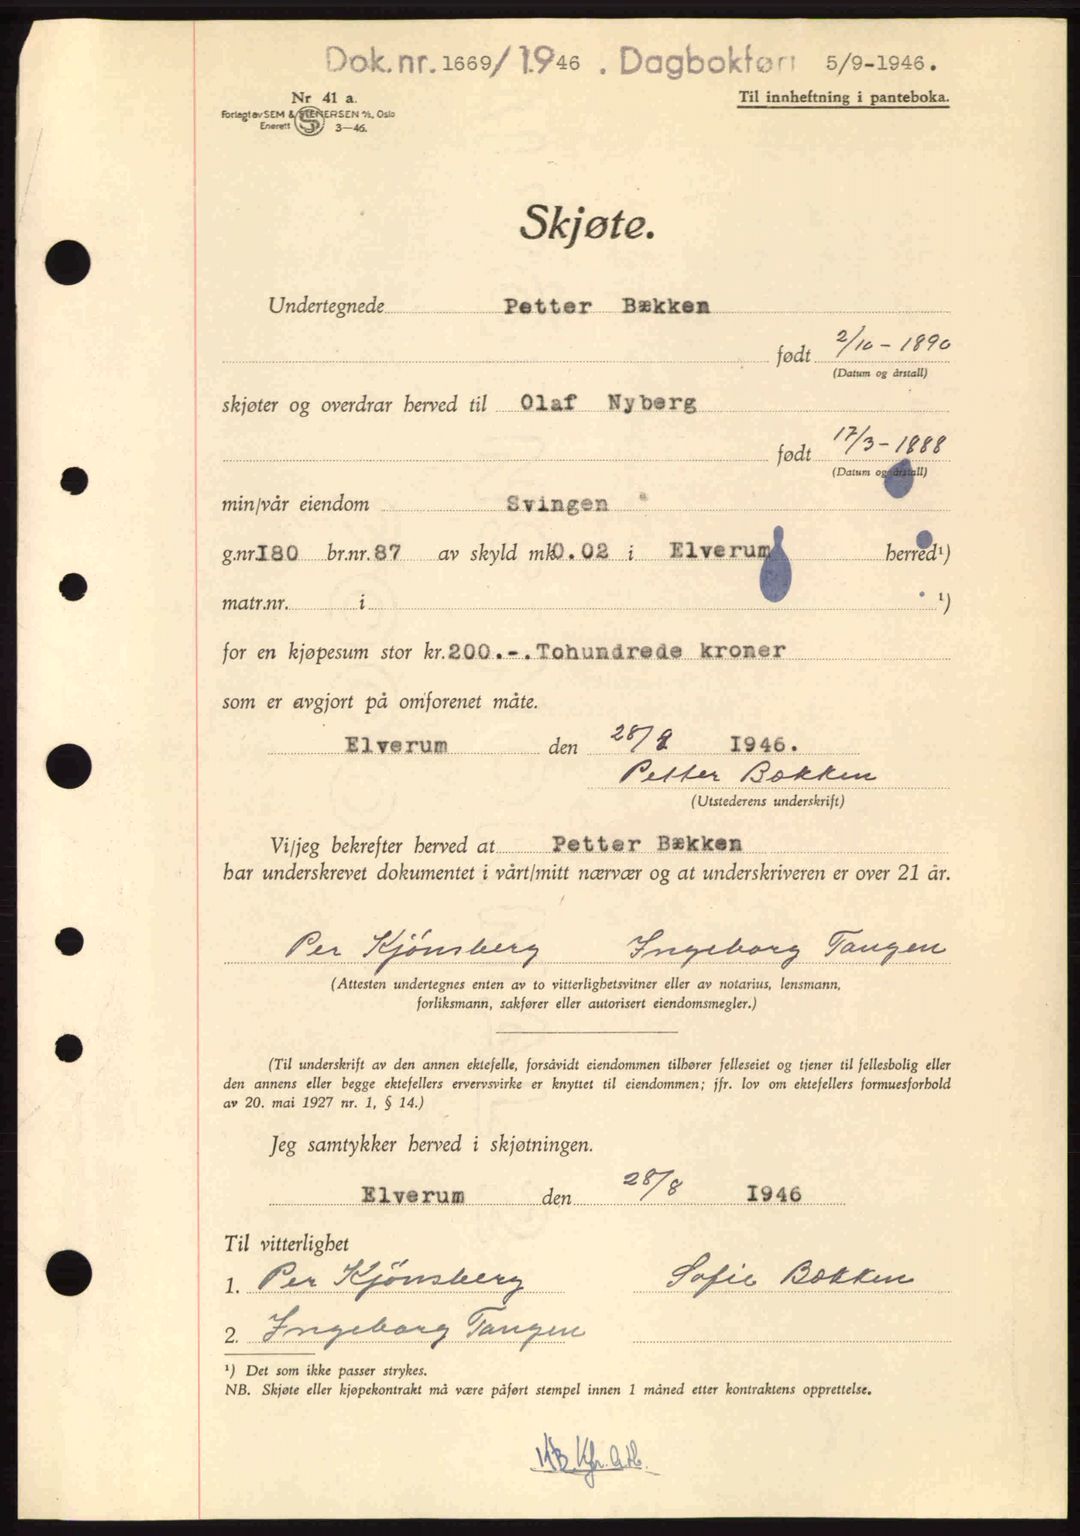 Dok.nr. 1669/1946 . Dagbokført 5/9-1946.
Nr 41 a.
Til innheftning i panteboka.
Forlagt av SEM & STENERSEN A/S, Oslo
Enerett 3—46.
Skjøte.
Undertegnede Petter Bækken
født 2/10 - 1890
(Datum og årstall)
skjøter og overdrar herved til Olaf Nyberg
født 17/3 - 1888
(Datum og årstall)
min/vår eiendom Svingen
g.nr. 180 br.nr. 87 av skyld mk 0.02 i Elverum herred¹)
matr.nr. i ¹)
for en kjøpesum stor kr. 200.-. Tohundrede kroner
som er avgjort på omforenet måte.
Elverum den 28/8 1946.
Petter Bækken
(Utstederens underskrift)
Vi/jeg bekrefter herved at Petter Bækken
har underskrevet dokumentet i vårt/mitt nærvær og at underskriveren er over 21 år.
Per Kjønsberg Ingeborg Tangen
(Attesten undertegnes enten av to vitterlighetsvitner eller av notarius, lensmann,
forliksmann, sakfører eller autorisert eiendomsmegler.)
(Til underskrift av den annen ektefelle, forsåvidt eiendommen tilhører felleseiet og tjener til fellesbolig eller
den annens eller begge ektefellers ervervsvirke er knyttet til eiendommen; jfr. lov om ektefellers formuesforhold
av 20. mai 1927 nr. 1, § 14.)
Jeg samtykker herved i skjøtningen.
Elverum den 28/8 1946
Til vitterlighet
1. Per Kjønsberg Sofie Bækken
2. Ingeborg Tangen
¹) Det som ikke passer strykes.
NB. Skjøte eller kjøpekontrakt må være påført stempel innen 1 måned etter kontraktens opprettelse.